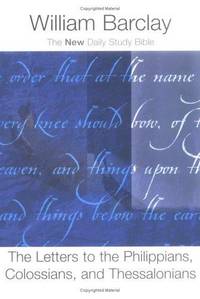 William Barclay
The New Daily Study Bible
order that at the name
every knee should bow, of t
eaven, and things upon the
and things below the earth
The Letters to the Philippians,
Colossians, and Thessalonians